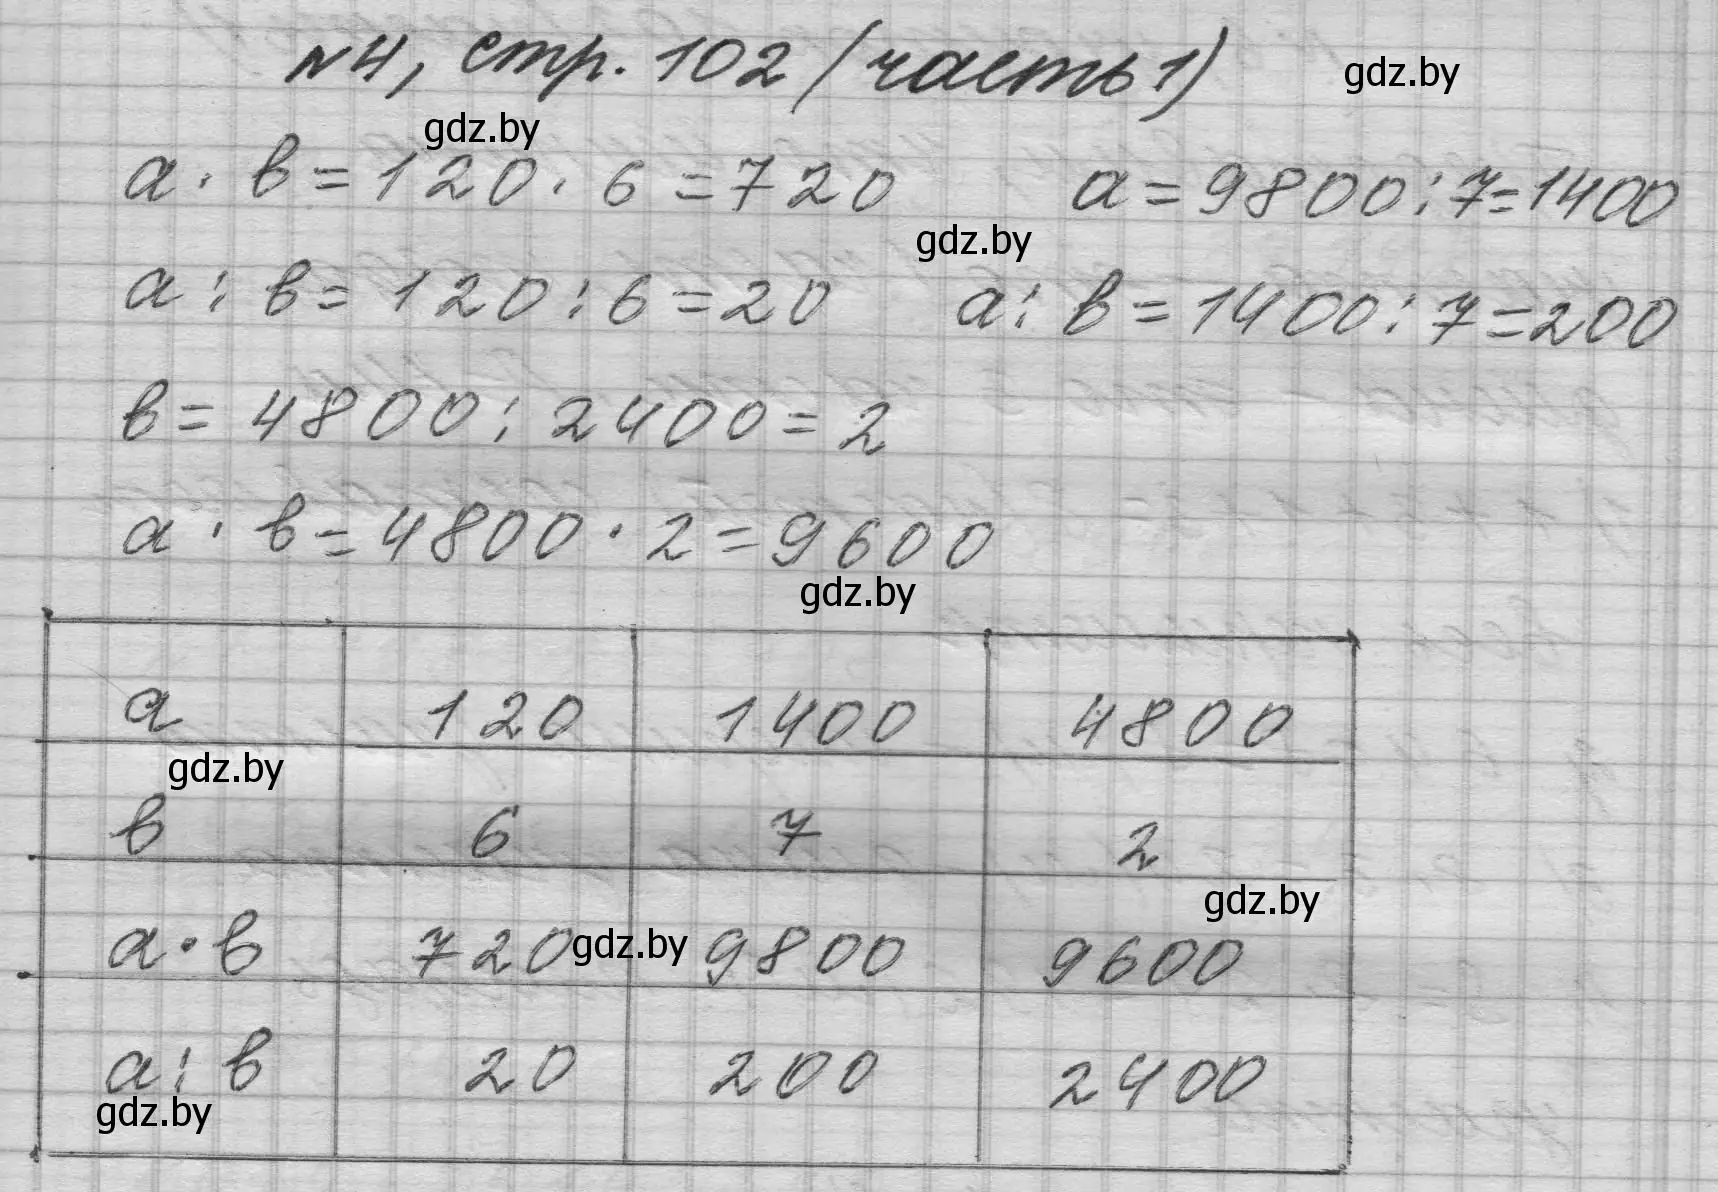 №4, стр. 102 (часть 1)
gdz.by
gdz.by
a · b = 120 · 6 = 720
a = 9800 : 7 = 1400
gdz.by
a : b = 120 : 6 = 20
a : b = 1400 : 7 = 200
b = 4800 : 2400 = 2
a · b = 4800 · 2 = 9600
gdz.by
a 120 1400 4800
gdz.by
b 6 7 2
gdz.by
a · b 720 9800 9600
gdz.by
a : b 20 200 2400
gdz.by